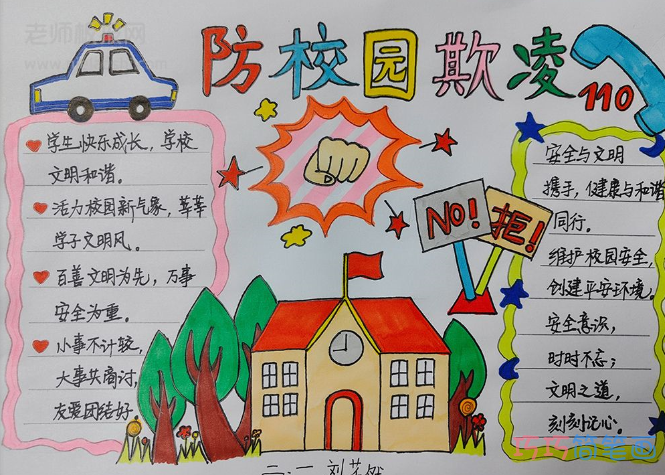 防校园欺凌
110
学生快乐成长，学校
文明和谐。
活力校园新气象，莘莘
学子文明风。
百善文明为先，万事
安全为重。
小事不计较，
大事共商讨，
友爱团结好。
NO!
拒!
安全与文明
携手，健康与和谐
同行。
维护校园安全，
创建平安环境。
安全意识，
时时不忘；
文明之道，
刻刻记心。
二.一